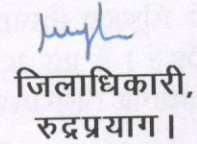 जिलाधिकारी,
रुद्रप्रयाग।